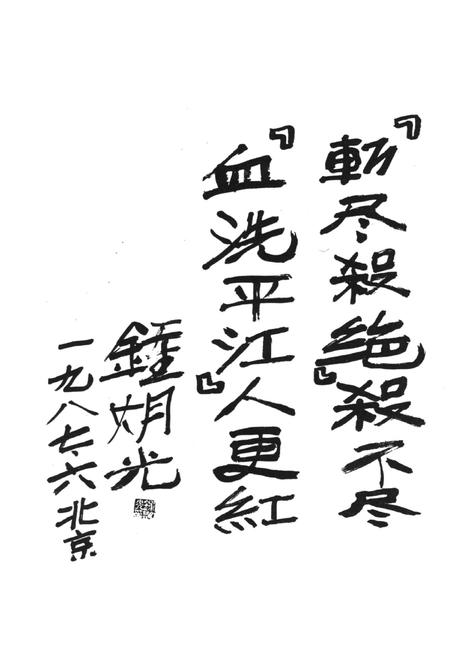 『斬尽殺絶』殺不尽
『血洗平江』人更紅
鍾明光
一九八七.六北京